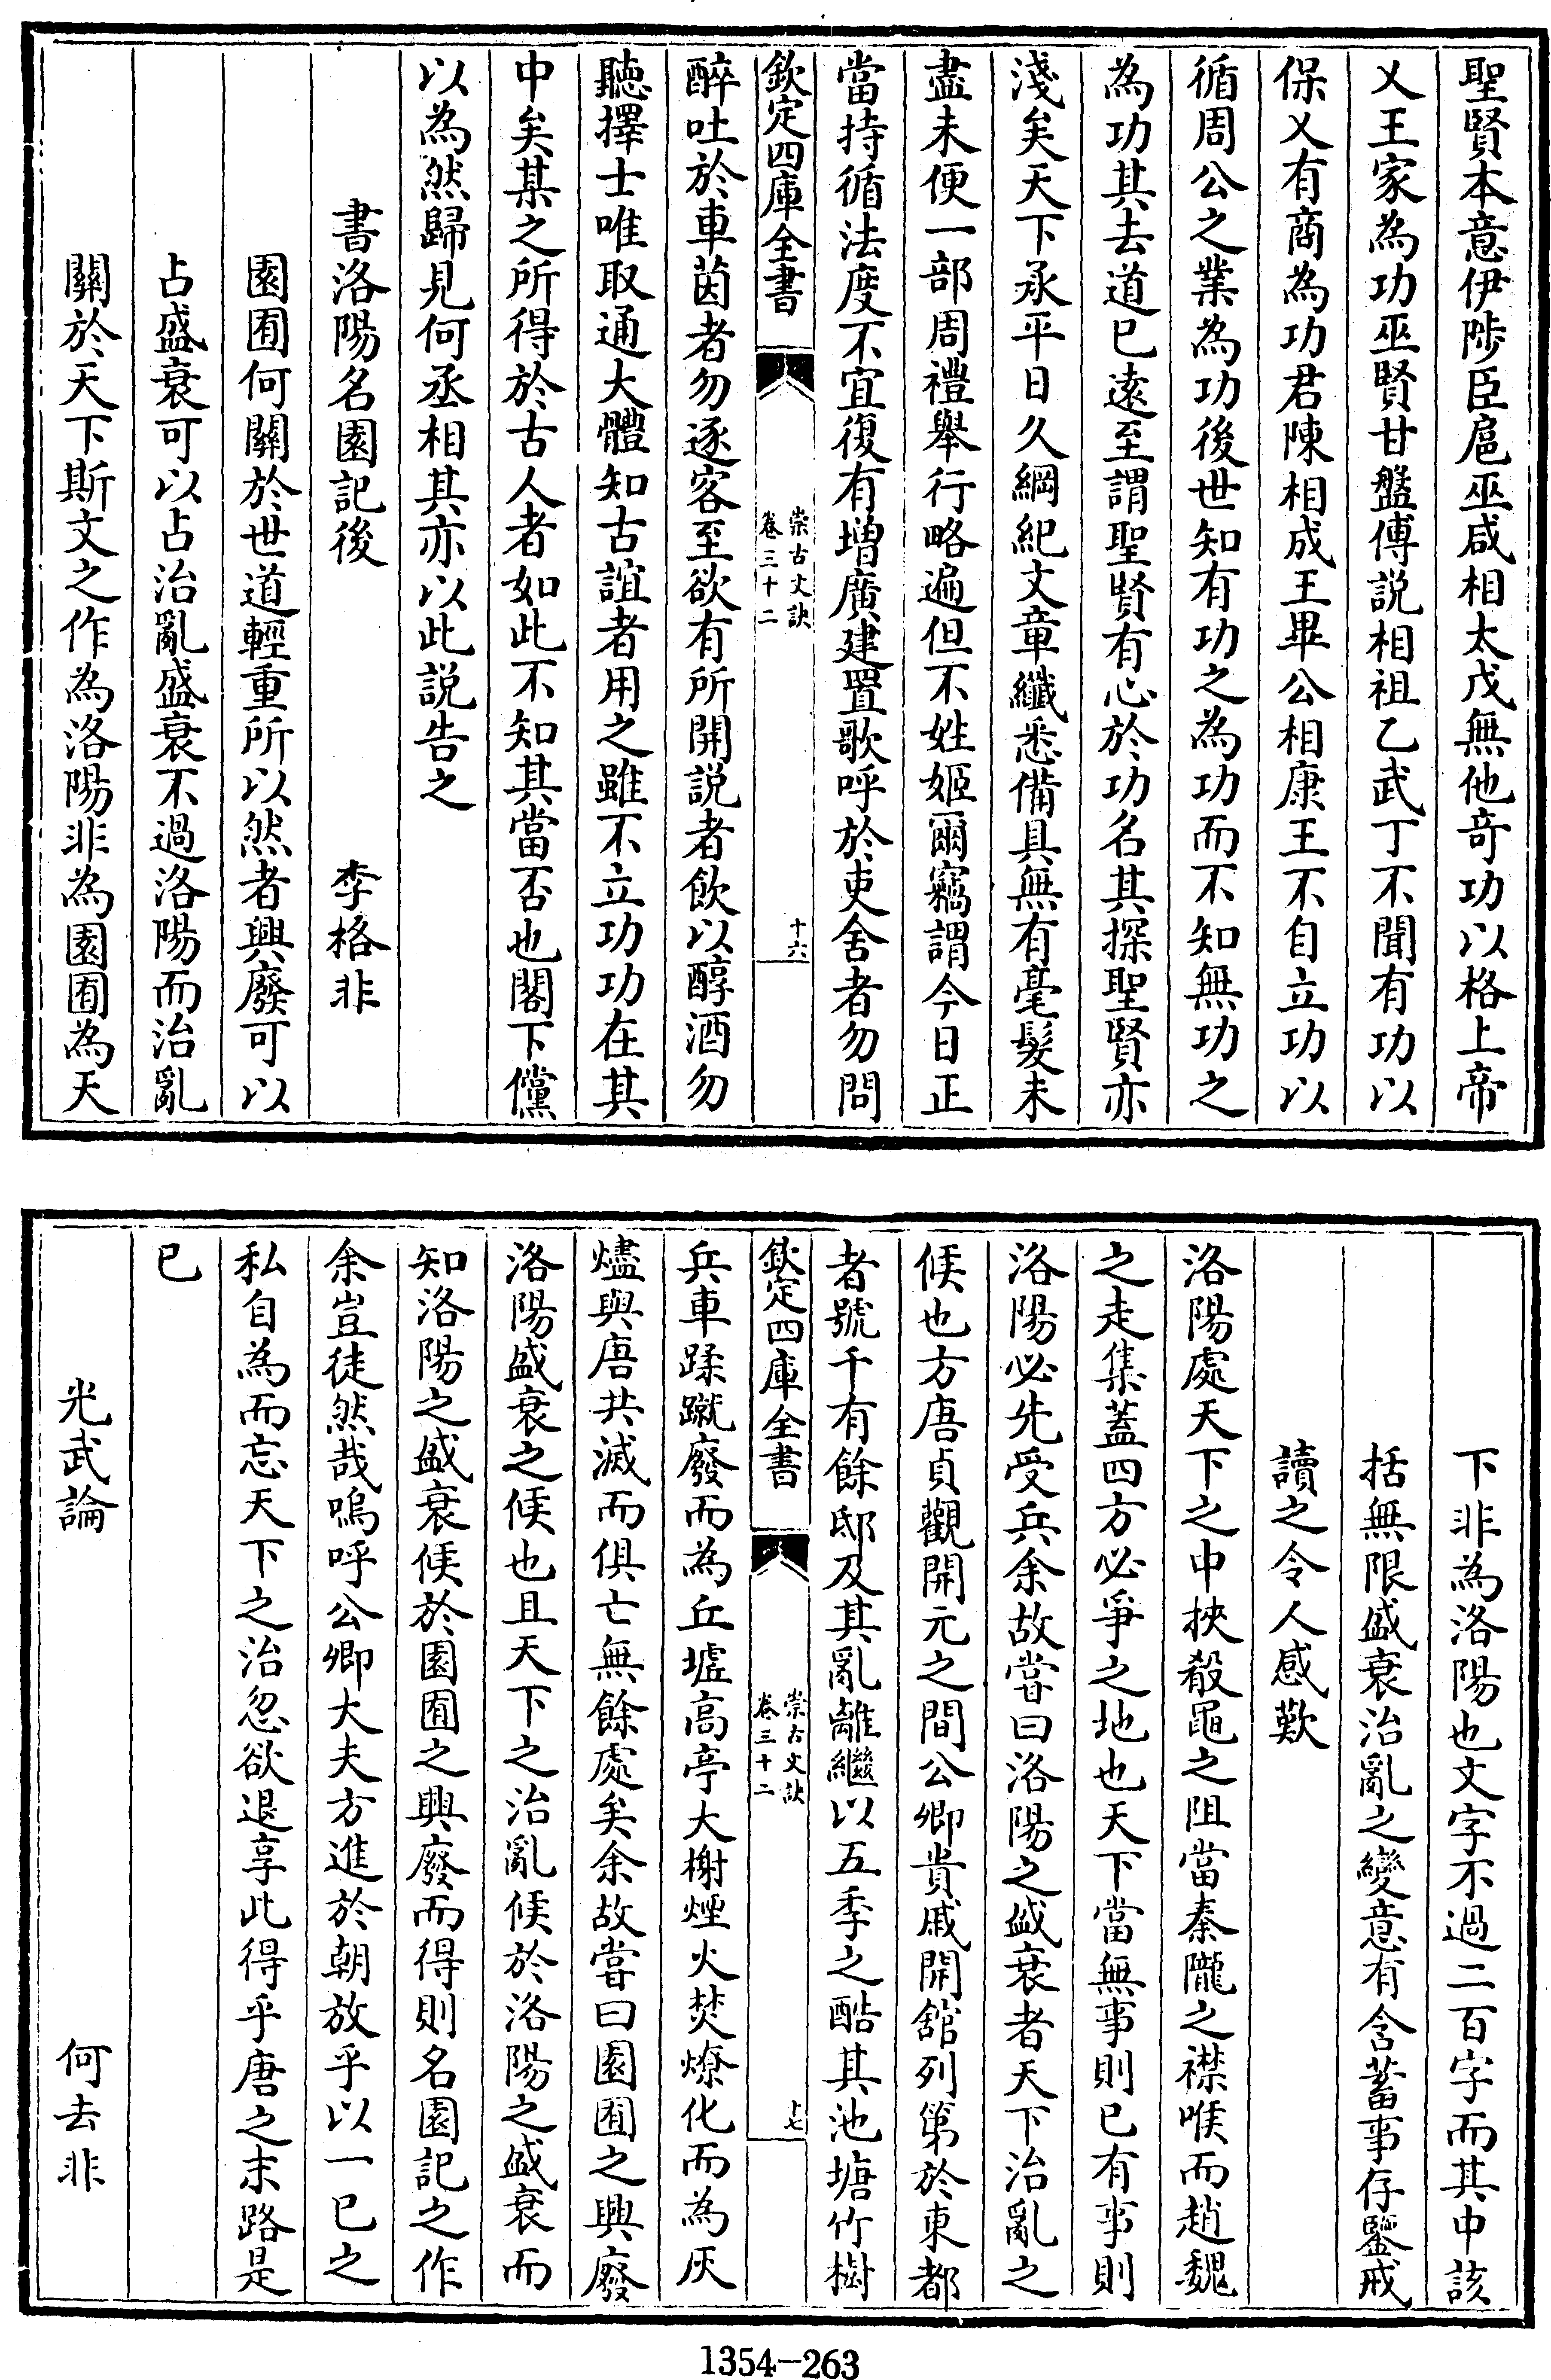 聖賢本意伊陟臣扈巫咸相太戊無他竒功以格上帝
乂王家為功巫賢甘盤傅説相祖乙武丁不聞有功以
保乂有商為功君陳相成王畢公相康王不自立功以
循周公之業為功後世知有功之為功而不知無功之
為功其去道已逺至謂聖賢有心於功名其探聖賢亦
淺矣天下承平日久綱紀文章纖悉備具無有毫髪未
盡未便一部周禮舉行略遍但不姓姬爾竊謂今日正
當持循法度不宜復有増廣建置歌呼於吏舍者勿問
欽定四庫全書
崇古文訣
卷三十二
十六
醉吐於車茵者勿逐客至欲有所開説者飲以醇酒勿
聽擇士唯取通大體知古誼者用之雖不立功功在其
中矣某之所得於古人者如此不知其當否也閣下儻
以為然歸見何丞相其亦以此説告之
書洛陽名園記後 李格非
園囿何關於世道輕重所以然者興廢可以
占盛衰可以占治亂盛衰不過洛陽而治亂
關於天下斯文之作為洛陽非為園囿為天
下非為洛陽也文字不過二百字而其中該
括無限盛衰治亂之變意有含蓄事存鑒戒
讀之令人感歎
洛陽處天下之中挾殽黽之阻當秦隴之襟喉而趙魏
之走集葢四方必爭之地也天下當無事則已有事則
洛陽必先受兵余故嘗曰洛陽之盛衰者天下治亂之
候也方唐貞觀開元之間公卿貴戚開舘列第於東都
者號千有餘邸及其亂離繼以五季之酷其池塘竹樹
欽定四庫全書
崇古文訣
卷三十二
十七
兵車蹂蹴廢而為丘墟高亭大榭煙火焚燎化而為灰
燼與唐共滅而俱亡無餘處矣余故嘗曰園囿之興廢
洛陽盛衰之候也且天下之治亂候於洛陽之盛衰而
知洛陽之盛衰候於園囿之興廢而得則名園記之作
余豈徒然哉嗚呼公卿大夫方進於朝放乎以一已之
私自為而忘天下之治忽欲退享此得乎唐之末路是
已
光武論 何去非
1354-263